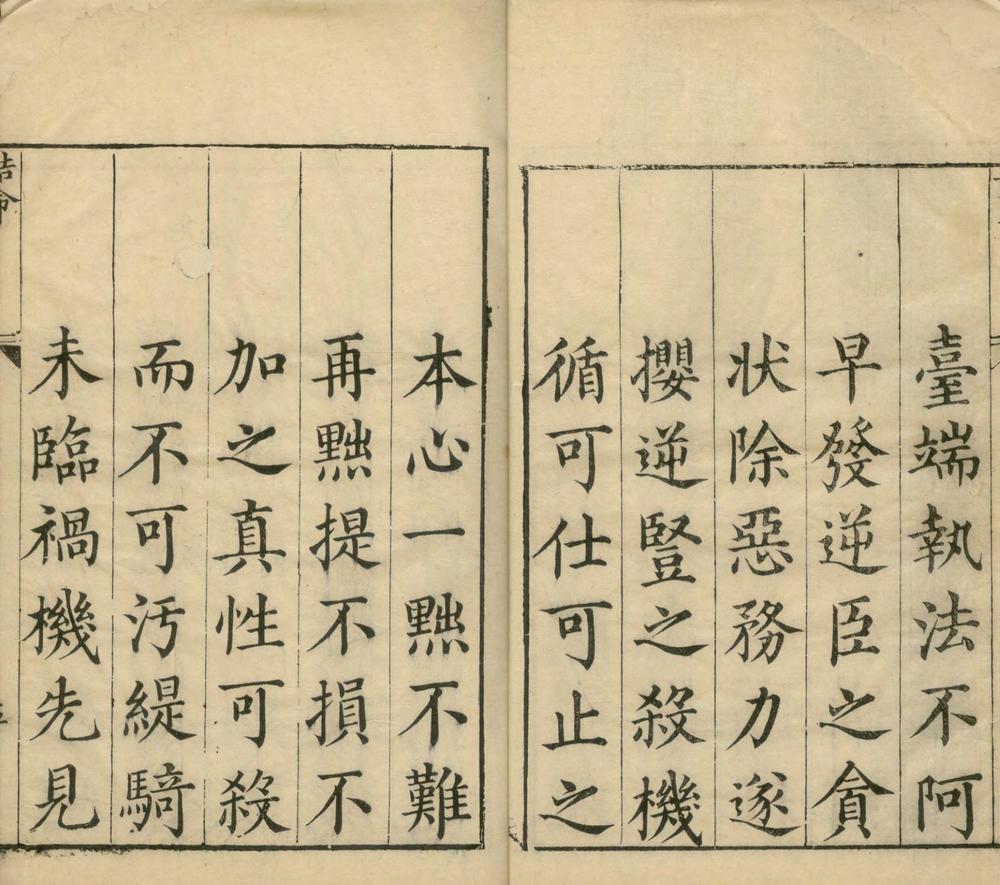 臺端執法不阿
早發逆臣之貪
狀除惡務力遂
攖逆豎之殺機
循可仕可止之
本心一黜不難
再黜提不損不
加之真性可殺
而不可汚緹騎
未臨禍機先見
誥命